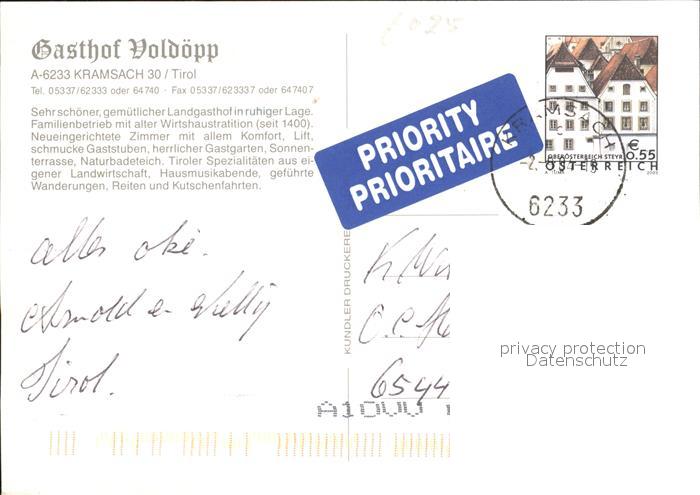 Gasthof Voldöpp
A-6233 KRAMSACH 30 / Tirol
Tel. 05337/62333 oder 64740 · Fax 05337/623337 oder 647407
Sehr schöner, gemütlicher Landgasthof in ruhiger Lage.
Familienbetrieb mit alter Wirtshaustratition (seit 1400).
Neueingerichtete Zimmer mit allem Komfort, Lift,
schmucke Gaststuben, herrlicher Gastgarten, Sonnen-
terrasse, Naturbadeteich. Tiroler Spezialitäten aus ei-
gener Landwirtschaft, Hausmusikabende, geführte
Wanderungen, Reiten und Kutschenfahrten.
alles oké.
Arnold en Nelly
Tirol.
KUNDLER DRUCKERE
PRIORITY
PRIORITAIRE
OBERÖSTERREICH STEYR
€ 0.55
ÖSTERREICH
6233
K
6544
privacy protection
Datenschutz